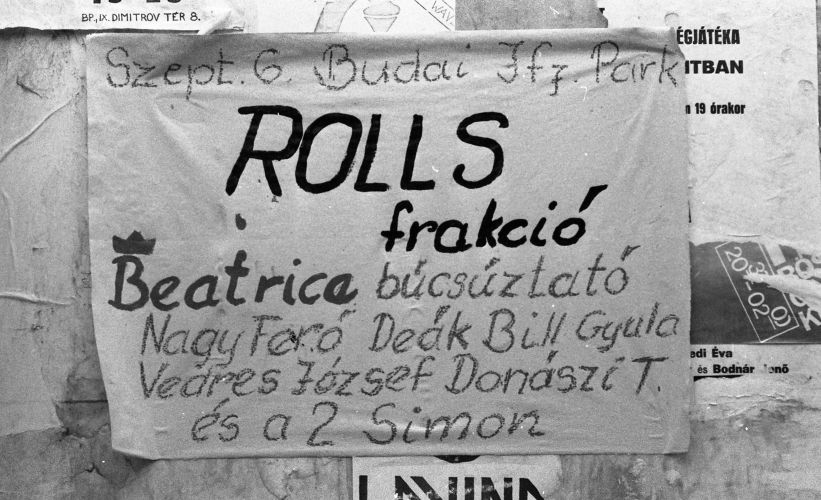 BP., IX. DIMITROV TÉR 8.
ÉGJÁTÉKA
ITBAN
19 órakor
Szept. 6. Budai Ifj. Park
ROLLS
frakció
Beatrice búcsúztató
Nagy Feró Deák Bill Gyula
Vedres József Donászi T.
és a 2 Simon
20-02
edi Éva
és Bodnár Jenő